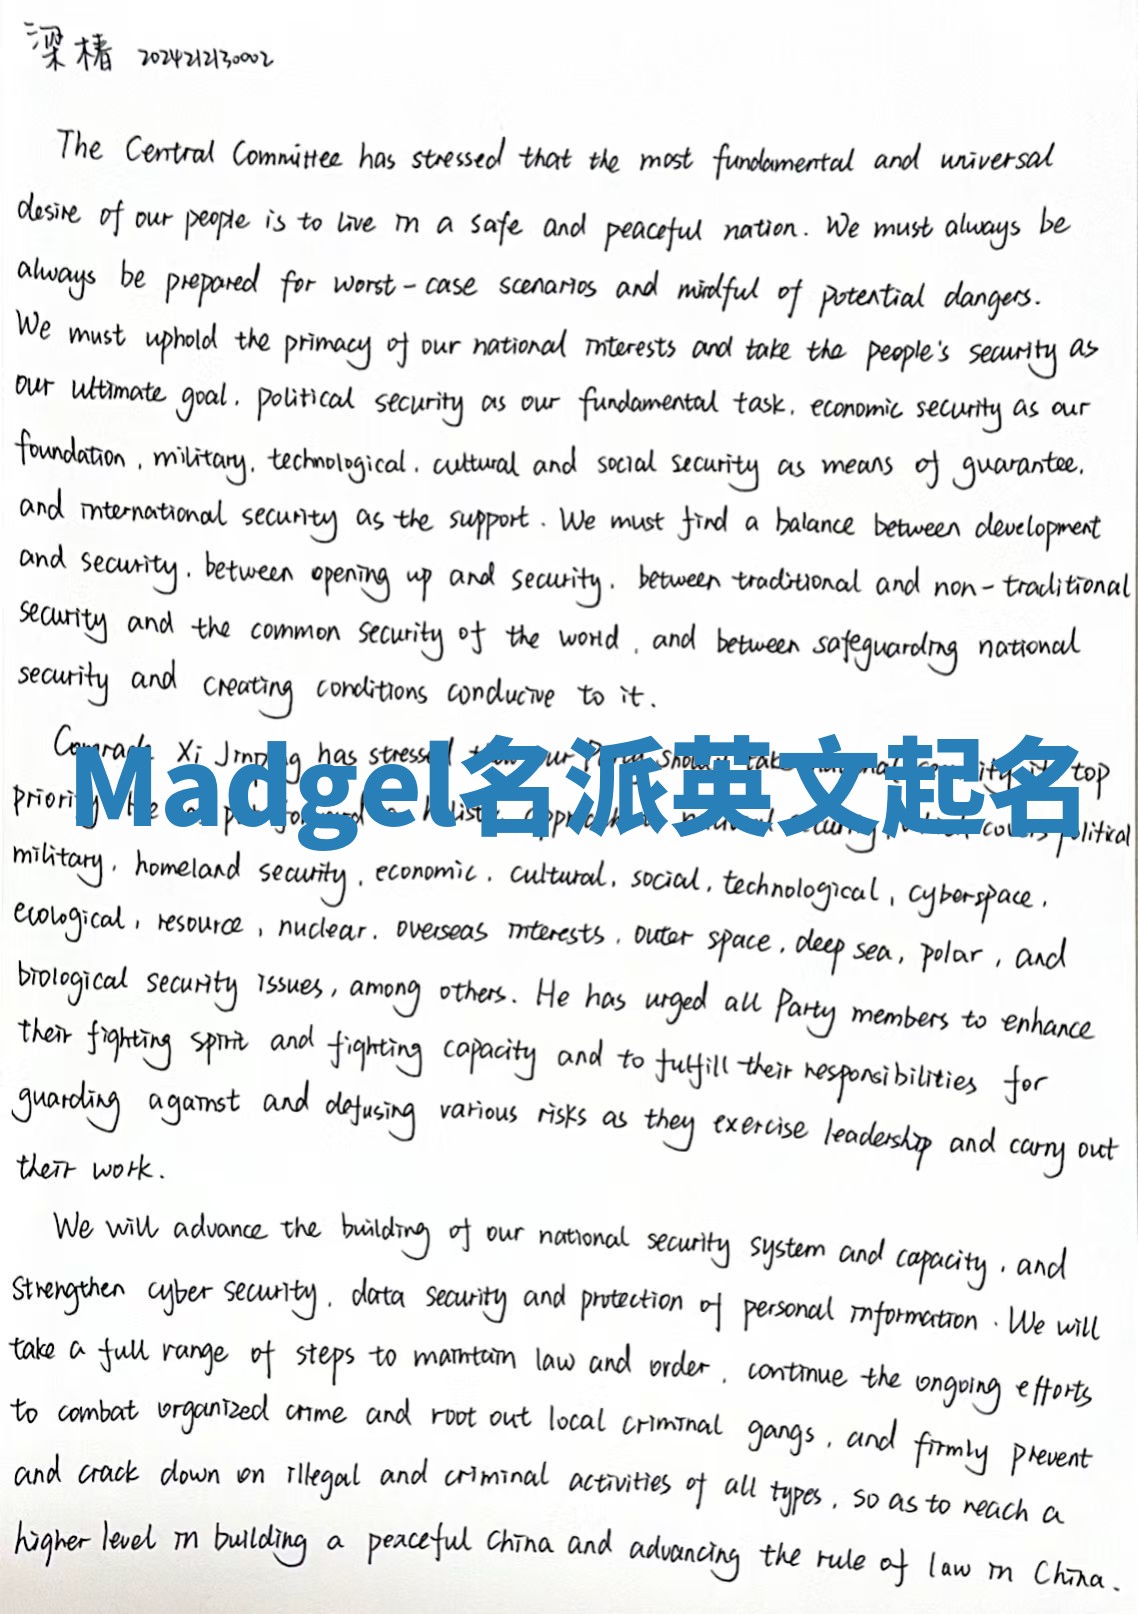 梁椿 2024212130002
The Central Committee has stressed that the most fundamental and universal
desire of our people is to live in a safe and peaceful nation. We must always be
always be prepared for worst-case scenarios and mindful of potential dangers.
We must uphold the primacy of our national interests and take the people's security as
our ultimate goal, political security as our fundamental task, economic security as our
foundation, military, technological, cultural and social security as means of guarantee,
and international security as the support. We must find a balance between development
and security, between opening up and security, between traditional and non-traditional
security and the common security of the world, and between safeguarding national
security and creating conditions conducive to it.
Comrade Xi Jinping has stressed that our Party should take top
Madgel名派英文起名
priority. He covers political
military, homeland security, economic, cultural, social, technological, cyberspace,
ecological, resource, nuclear, overseas interests, outer space, deep sea, polar, and
biological security issues, among others. He has urged all Party members to enhance
their fighting spirit and fighting capacity and to fulfill their responsibilities for
guarding against and defusing various risks as they exercise leadership and carry out
their work.
We will advance the building of our national security system and capacity, and
strengthen cyber security, data security and protection of personal information. We will
take a full range of steps to maintain law and order, continue the ongoing efforts
to combat organized crime and root out local criminal gangs, and firmly prevent
and crack down on illegal and criminal activities of all types, so as to reach a
higher level in building a peaceful China and advancing the rule of law in China.